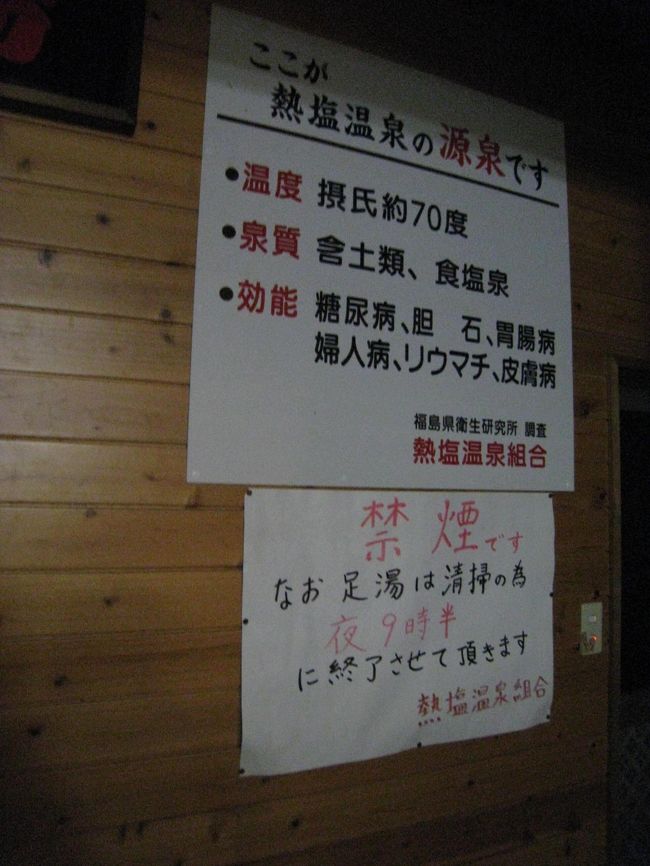 ここが
熱塩温泉の源泉です
•温度 摂氏約70度
•泉質 含土類、食塩泉
•効能 糖尿病、胆 石、胃腸病
婦人病、リウマチ、皮膚病
福島県衛生研究所 調査
熱塩温泉組合
禁煙です
なお 足湯は清掃の為
夜9時半
に終了させて頂きます
熱塩温泉組合